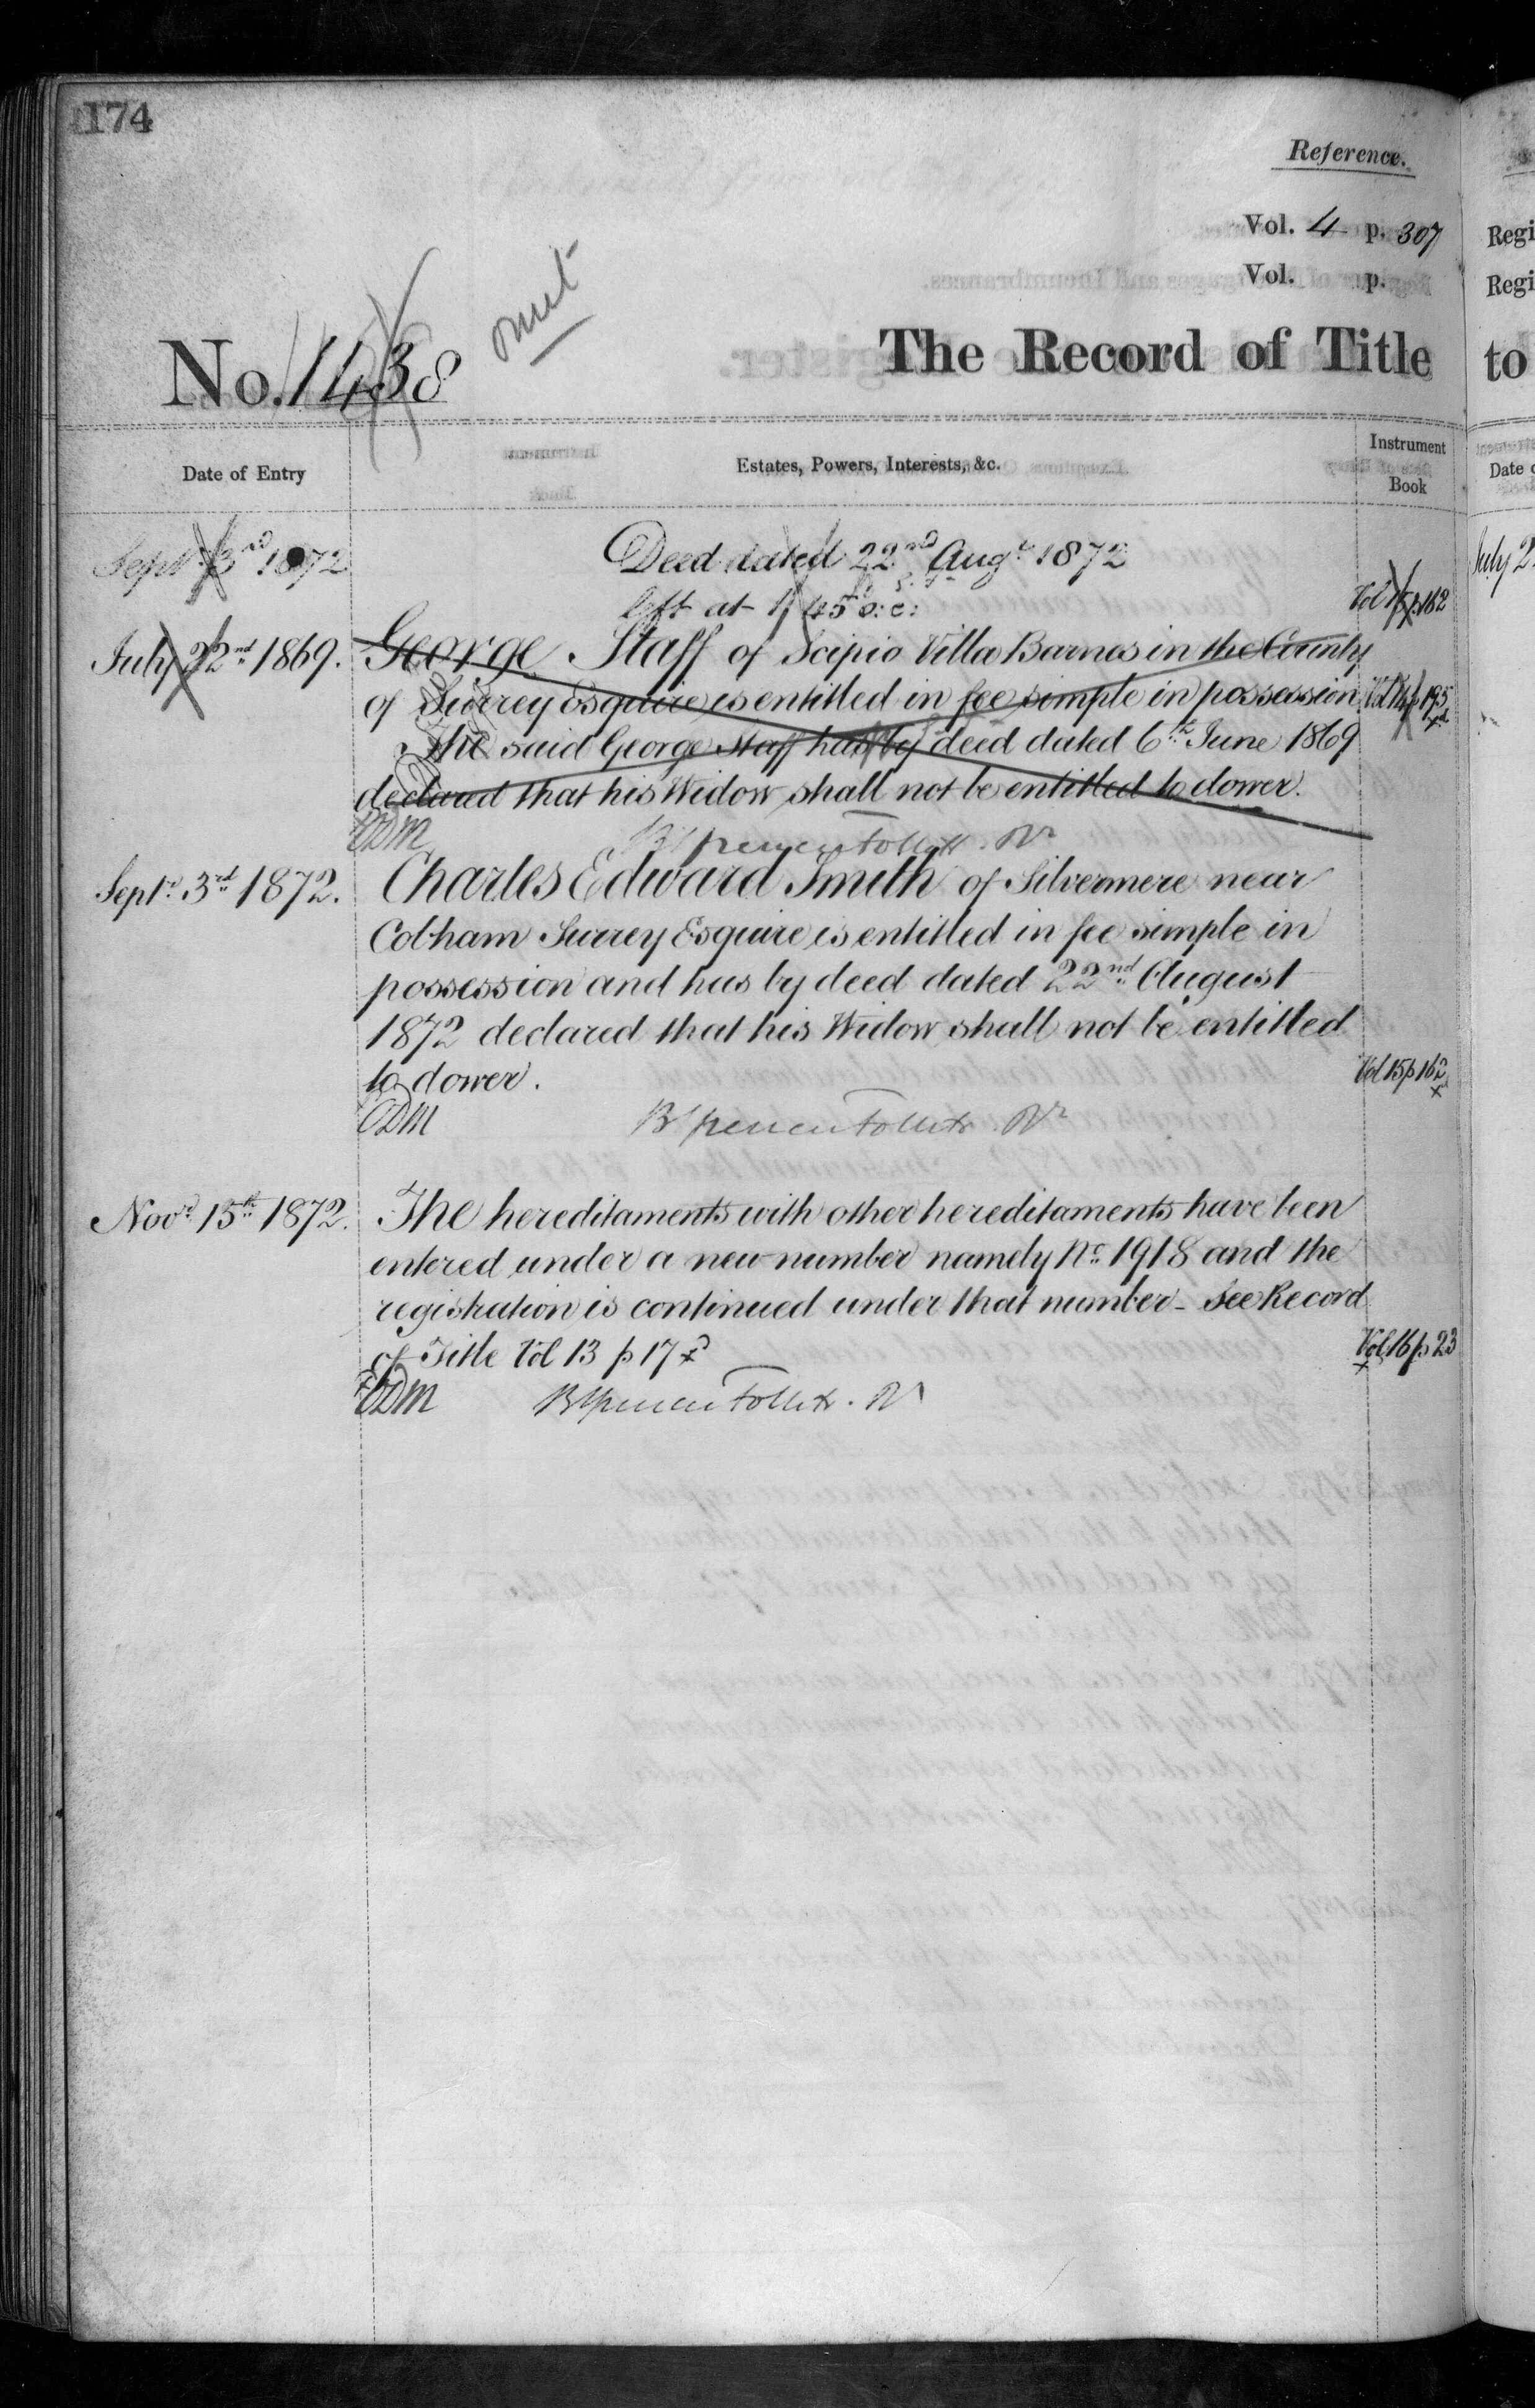 174
Reference.
Vol. 4 p. 307
Vol. p.
No. 1438
omit
The Record of Title
Date of Entry
Estates, Powers, Interests, &c.
Instrument
Book
Sept. 3rd 1872
Deed dated 22nd Augt 1872
left at 1/45 o:c:
Vol 15 p 162
July 22nd 1869. George Staff of Scipio Villa Barnes in the County
of Surrey Esquire is entitled in fee simple in possession
the said George Staff has by deed dated 6th June 1869
declared that his Widow shall not be entitled to dower.
EDM BSpencer Follett. Rr
Septr. 3rd 1872. Charles Edward Smith of Silvermere near
Cobham Surrey Esquire is entitled in fee simple in
possession and has by deed dated 22nd August
1872 declared that his Widow shall not be entitled
to dower. Vol 15 p 162
EDM BSpencer Follett Rr
Novr. 15th 1872. The hereditaments with other hereditaments have been
entered under a new number namely No. 1918 and the
registration is continued under that number - See Record
of Title Vol 13 p 17 Vol. 16 p 23
EDM BSpencer Follett. Rr
Regi
Regi
to
Date
July 2